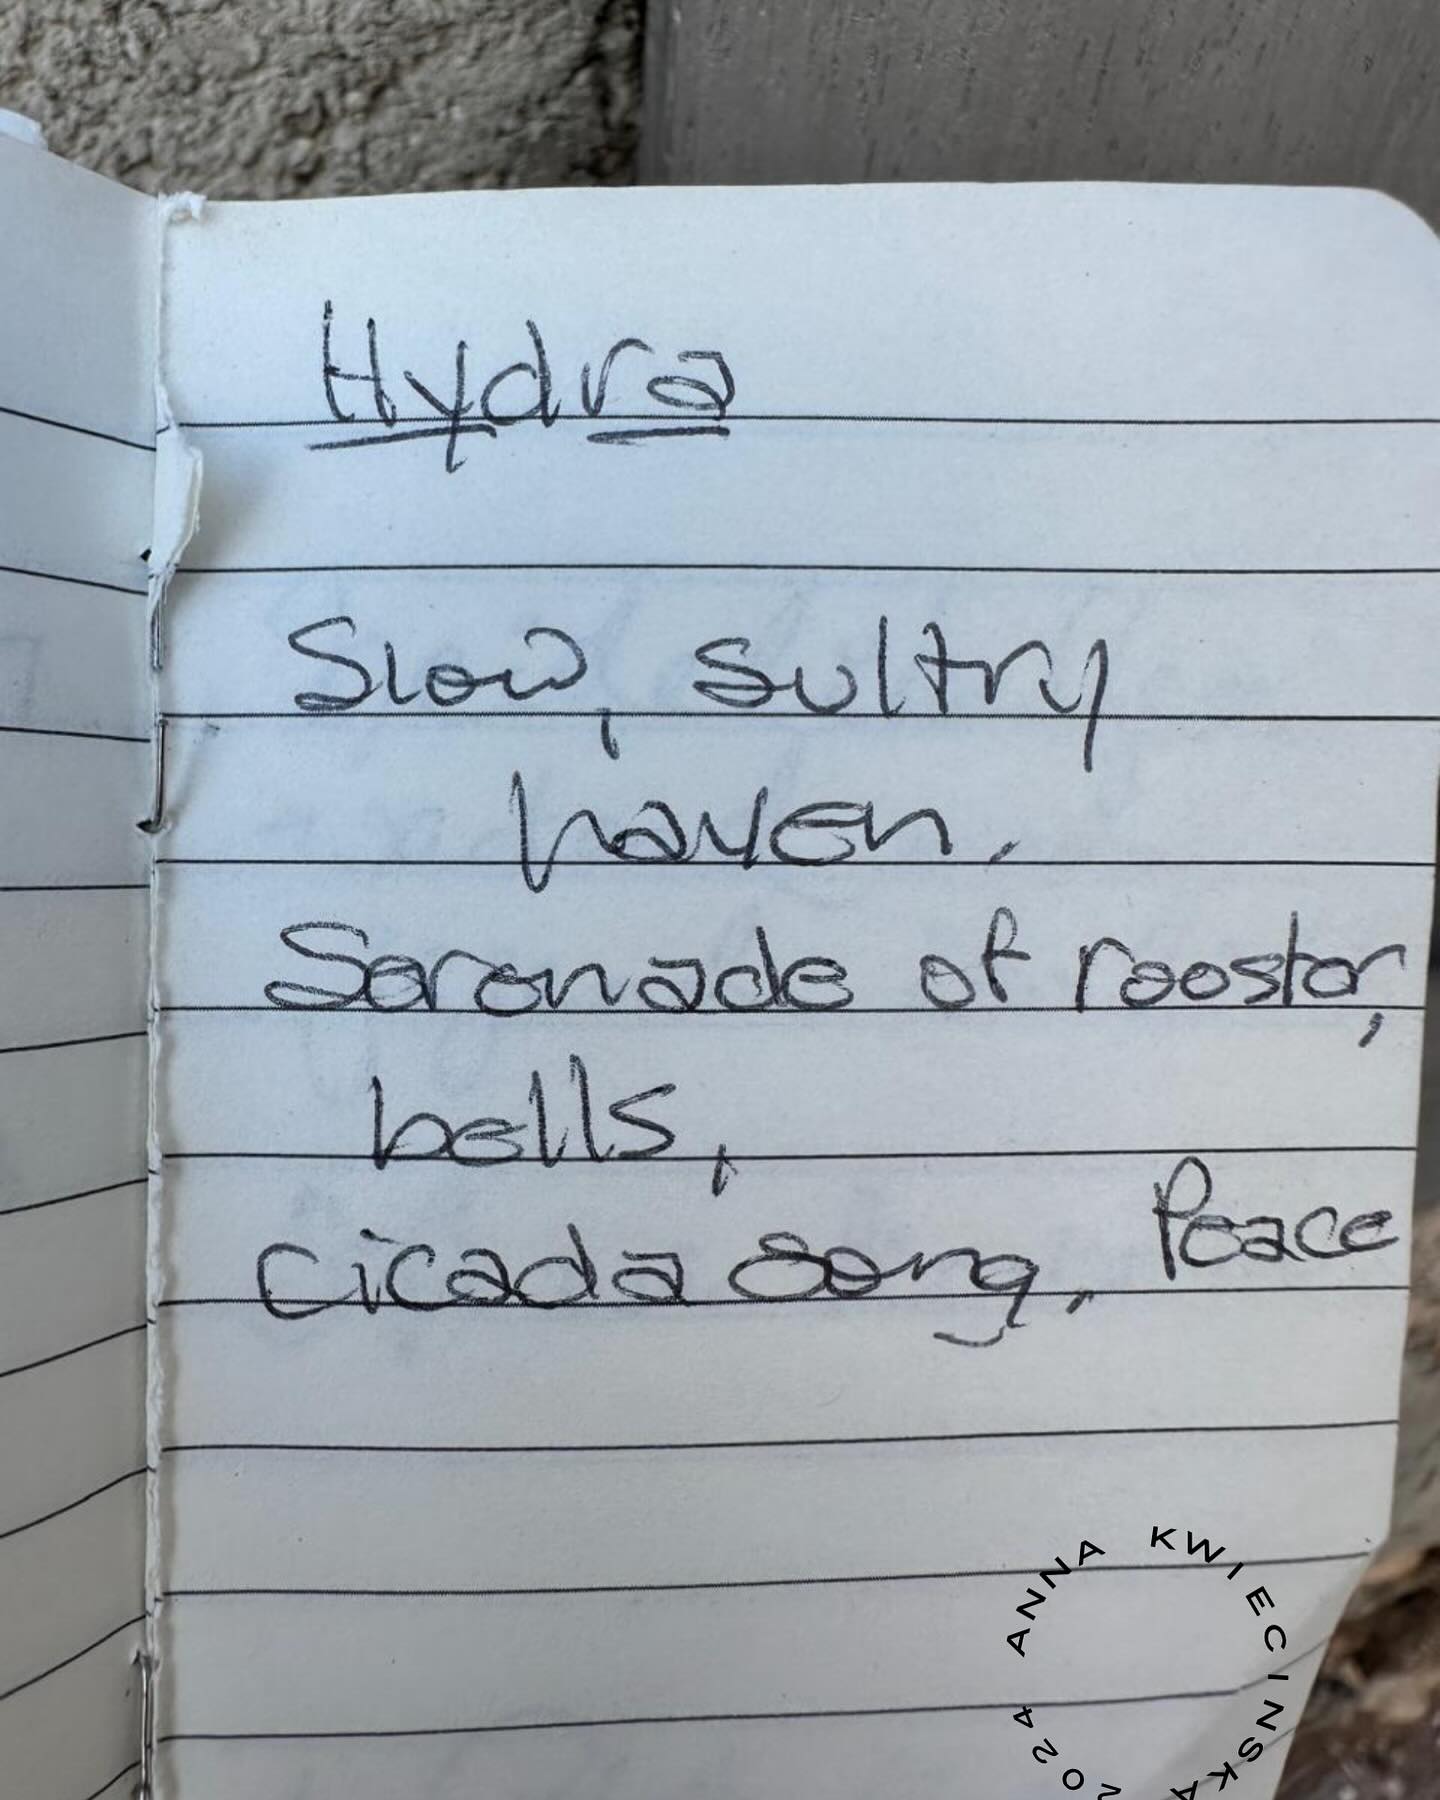 Hydra
Slow, sultry
haven.
Serenade of rooster,
bells,
cicada song. Peace
ANNA KWIECINSKA 2024